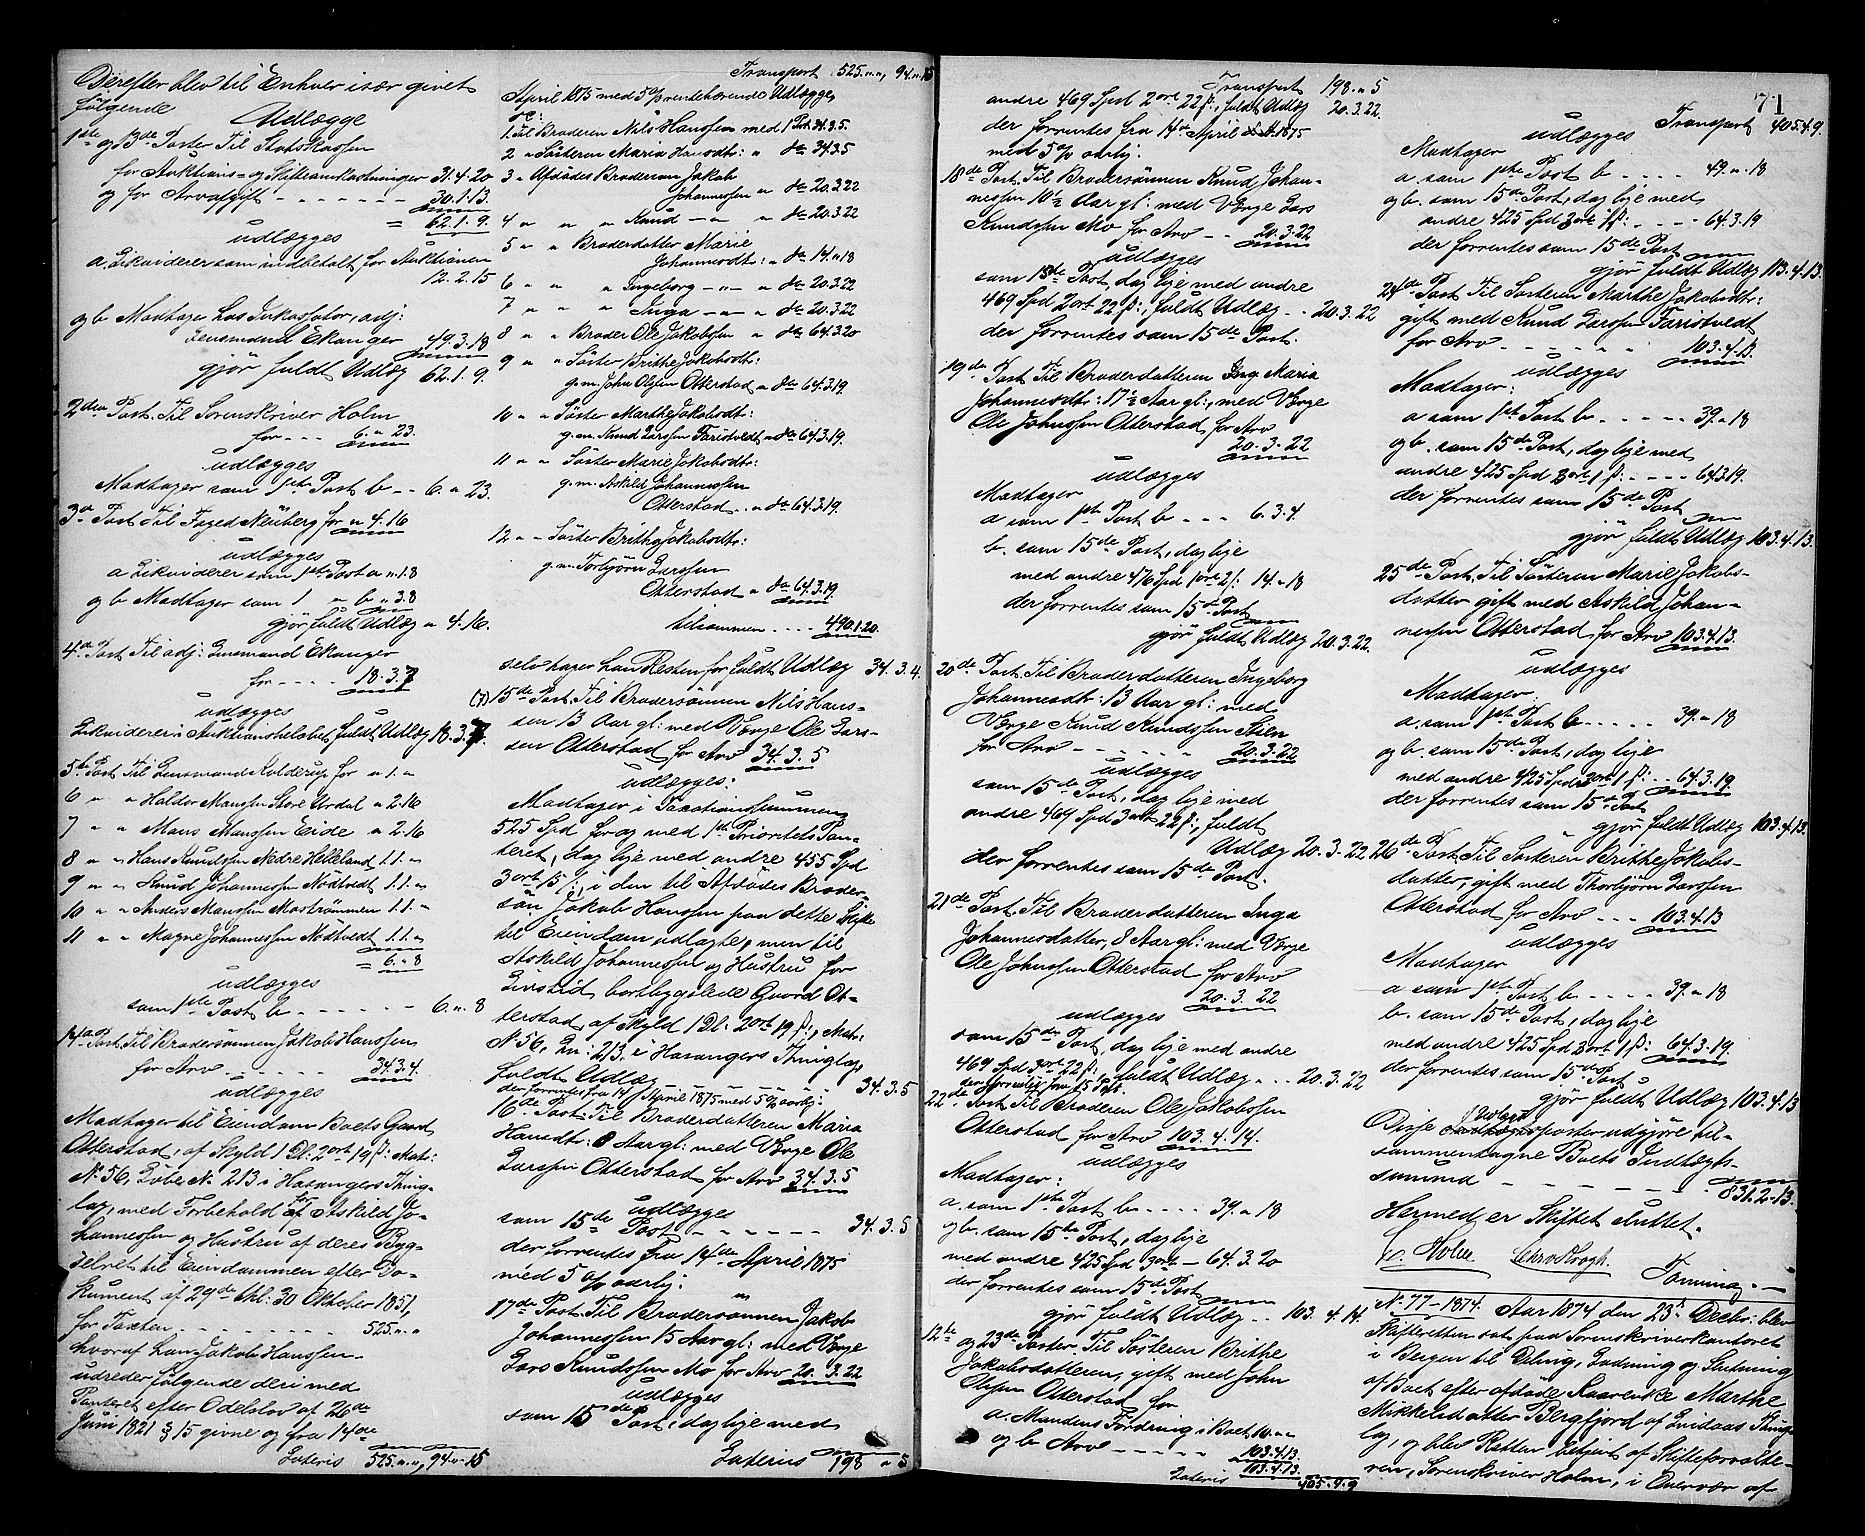 Derefter blev til Enhver især givet
følgende
Udlægge
1ste og 13de Poster Til Statskassen
for Auktions- og Skifteomkostninger 31.4.20
og for Arveafgift - - - - - 30.1.13.
= 62.1.9.
udlægges
a. Likviderer som indbetalt for Auktionen
12.2.15
og b Modtager hos Inkassator, adj:
Lensmand Ekanger 49.3.18
gjør fuldt Udlæg 62.1.9.
2den Post. Til Sorenskriver Holm
for - - - 6. " 23.
udlægges
Modtager som 1ste Post b - - 6. " 23.
3die Post Til Foged Neuberg for " 4.16
udlægges
a Likviderer som 1ste Post a " .1.8
og b Modtager som 1 " b " 3.8
gjør fuldt Udlæg " 4.16.
4de Post Til adj: Lensmand Ekanger
for - - - - 18.3.7
udlægges
Likviderer i Auktionsbeløbet fuldt Udlæg 18.3.7.
5te Post Til Lensmand Kolderup for " 1. "
6 " " Haldor Monssen Store Urdal " 2.16
7 " " Mons Monssen Eide " 2.16
8 " " Hans Knudssen Nedre Helleland 1.1. "
9 " " Knud Johannessen Nödtvedt 1.1. "
10 " " Anders Monssen Mostrømmen 1.1. "
11 " " Magne Johannessen Nödtvedt 1.1. "
= 6. " 8
udlægges
som 1ste Post b - - - - - 6. " 8
14de Post Til Brodersønnen Jakob Hanssen
for Arv - - - - - 34.3.4.
udlægges
Modtager til Eiendom Boets Gaard
Otterstad, af Skyld 1 Dl: 2 ort 19 ß: Matr:
No 56, Løbe No 213 i Hosangers Thing-
lag, med Forbehold for Askild Jo-
hannessen og Hustru af deres Byg-
selret til Eiendommen efter Do-
kument af 29de thl: 30 Oktober 1851,
for Taxten - - - - - 525. " . "
hvoraf han Jakob Hanssen
udreder følgende deri med
Panteret efter Odelslov af 26de
Juni 1821 § 15 givne og fra 14de
Lateris 525. " . " , 94. " . 15
Transport . 525. " . " , 94. " . 15
April 1875 med 5 % rentebærende Udlægge,
1. Til Broderen Nils Hanssen med 1 Post 34.3.5.
2 " Søsteren Maria Hansdtr: " do 34.3.5
3 " Afdødes Brodersøn Jakob
Johannessen " do 20.3.22
4 " " " Knud - " - " do 20.3.22
5 " " Broderdatter Marie
Johannesdtr: " do 14. " 18
6 " " " Ingeborg - " - " do 20.3.22
7 " " " Inga - " - " do 20.3.22
8 " " Broder Ole Jakobssen " do 64.3.20
9 " " Søster Brithe Jakobsdtr:
g.m. John Olssen Otterstad " do 64.3.19.
10 " " Søster Marthe Jakobsdtr:
g.m. Knud Larssen Faristvedt " do 64.3.19.
11 " " Søster Marie Jakobsdtr:
g.m. Askild Johannessen
Otterstad . . " do 64.3.19.
12 " " Søster Brithe Jakobsdtr:
g.m. Torbjørn Larssen
Otterstad " do 64.3.19
tilsammen . . . . 490.1.20.
selv tager han Resten for fuldt Udlæg 34.3.4.
(7) 15de Post. Til Brodersønnen Nils Hans-
sen 13 Aar gl: med Værge Ole Lars-
sen Otterstad for Arv 34.3.5
udlægges:
Modtager i Taxationssummen
525 Spd for og med 1ste Prioritets Pan-
teret, dog lige med andre 455 Spd
3 ort 15 ß:, i den til Afdødes Broder-
søn Jakob Hanssen paa dette Skifte
til Eiendom udlagte, men til
Askild Johannessen og Hustru for
Livstid bortbygslede Gaard Ot-
terstad af Skyld 1 Dl. 2 ort 19 ß:, Matr:
No 56, Lno: 213. i Hosangers Thinglag,
fuldt Udlæg - - - - - 34.3.5
der forrentes fra 14 April 1875 med 5 % aarlig:
16de Post. Til Broderdatteren Maria
Hansdtr: 8 Aar gl: med Værge Ole
Larssen Otterstad for Arv 34.3.5
udlægges
som 15de Post - - - - - 34.3.5
der forrentes fra 14de April 1875
med 5 % aarlig:
17de Post. Til Brodersønnen Jakob
Johannessen 15 Aar gl: med Værge
Lars Knudssen Mo for Arv 20.3.22
udlægges
som 15de Post, dog lige med
Lateris 198 " 5
Transport 198. " 5
andre 469 Spd 2 ort 22 ß:, fuldt Udlæg 20.3.22.
der forrentes fra 14de April 1875
med 5 % aarlig.
18de Post. Til Brodersønnen Knud Johan-
nessen 10½ Aar gl: med Værge Lars
Knudssen Mo for Arv - - 20.3.22
udlægges
som 15de Post, dog lige med andre
469 Spd 2 ort 22 ß:, fuldt Udlæg . . 20.3.22
der forrentes som 15de Post.
19de Post Til Broderdatteren Maria
Johannesdtr: 17½ Aar gl:, med Værge
Ole Johnssen Otterstad for Arv
20.3.22
udlægges
Modtager
a som 1ste Post b - - - 6.3.4.
b. som 15de Post, dog lige
med andre 476 Spd 1 ort 2 ß: 14. " 18
der forrentes som 15de Post
gjør fuldt Udlæg 20.3.22.
20de Post Til Broderdatteren Ingeborg
Johannesdtr: 13 Aar gl: med
Værge Knud Knudssen Stien
for Arv - - - - - 20.3.22
udlægges
som 15de Post, dog lige med
andre 469 Spd 3 ort 22 ß:, fuldt
Udlæg 20.3.22
der forrentes som 15de Post.
21de Post. Til Broderdatteren Inga
Johannesdatter, 8 Aar gl: med Værge
Ole Johnssen Otterstad for Arv
20.3.22
udlægges
som 15de Post, dog lige med andre
469 Spd 3 ort 22 ß: fuldt Udlæg . . . 20.3.22
der forrentes som 15 Post.
22de Post Til Broderen Ole Jakobssen
Otterstad for Arv 103.4.14.
udlægges
Modtager:
a. som 1ste Post b - - - - 39. " 18
og b. som 15de Post, dog lige
med andre 425 Spd 3 ort - 64.3.20
der forrentes som 15de Post
gjør fuldt Udlæg . . 103.4.14.
12te og 23de Poster. Til Søsteren Brithe
Jakobsdatteren, gift med John
Olssen Otterstad for
a. Mandens Fordring i Boet 10. " . "
og b Arv - - - - - 103.4.13.
113.4.13.
Lateris 405.4.9
71
Transport 405.4.9.
udlægges
Modtager
a som 1ste Post b - - - - 49. " . 18
og b. som 15de Post, dog lige med
andre 425 Spd 3 ort 1 ß: - - - - 64.3.19
der forrentes som 15de Post
gjør fuldt Udlæg 113.4.13.
24de Post Til Søsteren Marthe Jakobsdtr:
gift med Knud Larssen Faristvedt
for Arv - - - - - 103.4.13.
udlægges
Modtager:
a som 1ste Post b - - - - - 39. " 18
og b. som 15de Post, dog lige med
andre 425 Spd 3 ort 1 ß: - - - - 64.3.19.
der forrentes som 15de Post
gjør fuldt Udlæg 103.4.13.
25de Post. Til Søsteren Marie Jakobs-
datter gift med Askild Johan-
nessen Otterstad for Arv 103.4.13.
udlægges
Modtager.
a. som 1ste Post b - - - - - 39. " 18
og b. som 15de Post, dog lige
med andre 425 Spd 3 ort 1 ß: . . 64.3.19
der forrentes som 15de Post
gjør fuldt Udlæg 103.4.13.
26de Post. Til Søsteren Brithe Jakobs-
datter, gift med Thorbjørn Larssen
Otterstad for Arv - - - 103.4.13
udlægges
Modtager
a som 1ste Post b - - - - 39. " 18
b. som 15de Post, dog lige
med andre 425 Spd 3 ort 1 ß: 64.3.19.
der forrentes som 15de Post
gjør fuldt Udlæg 103.4.13
Disse Udlægsposter udgjøre til-
sammentagne Boets Indtægts-
summa - - - - - 831.2.13.
Hermed er Skiftet sluttet.
Holm
Tønning. -
No 77 - 1874. Aar 1874 den 23de Decbr: blev
Skifteretten sat paa Sorenskriverkontoret
i Bergen til Deling, Lodning og Slutning
af Boet efter afdøde Kaarenke Marthe
Mikkelsdatter Bergfjord af Lindaas Thing-
lag, og blev Retten betjent af Skifteforvalte-
ren, Sorenskriver Holm, i Overvær af